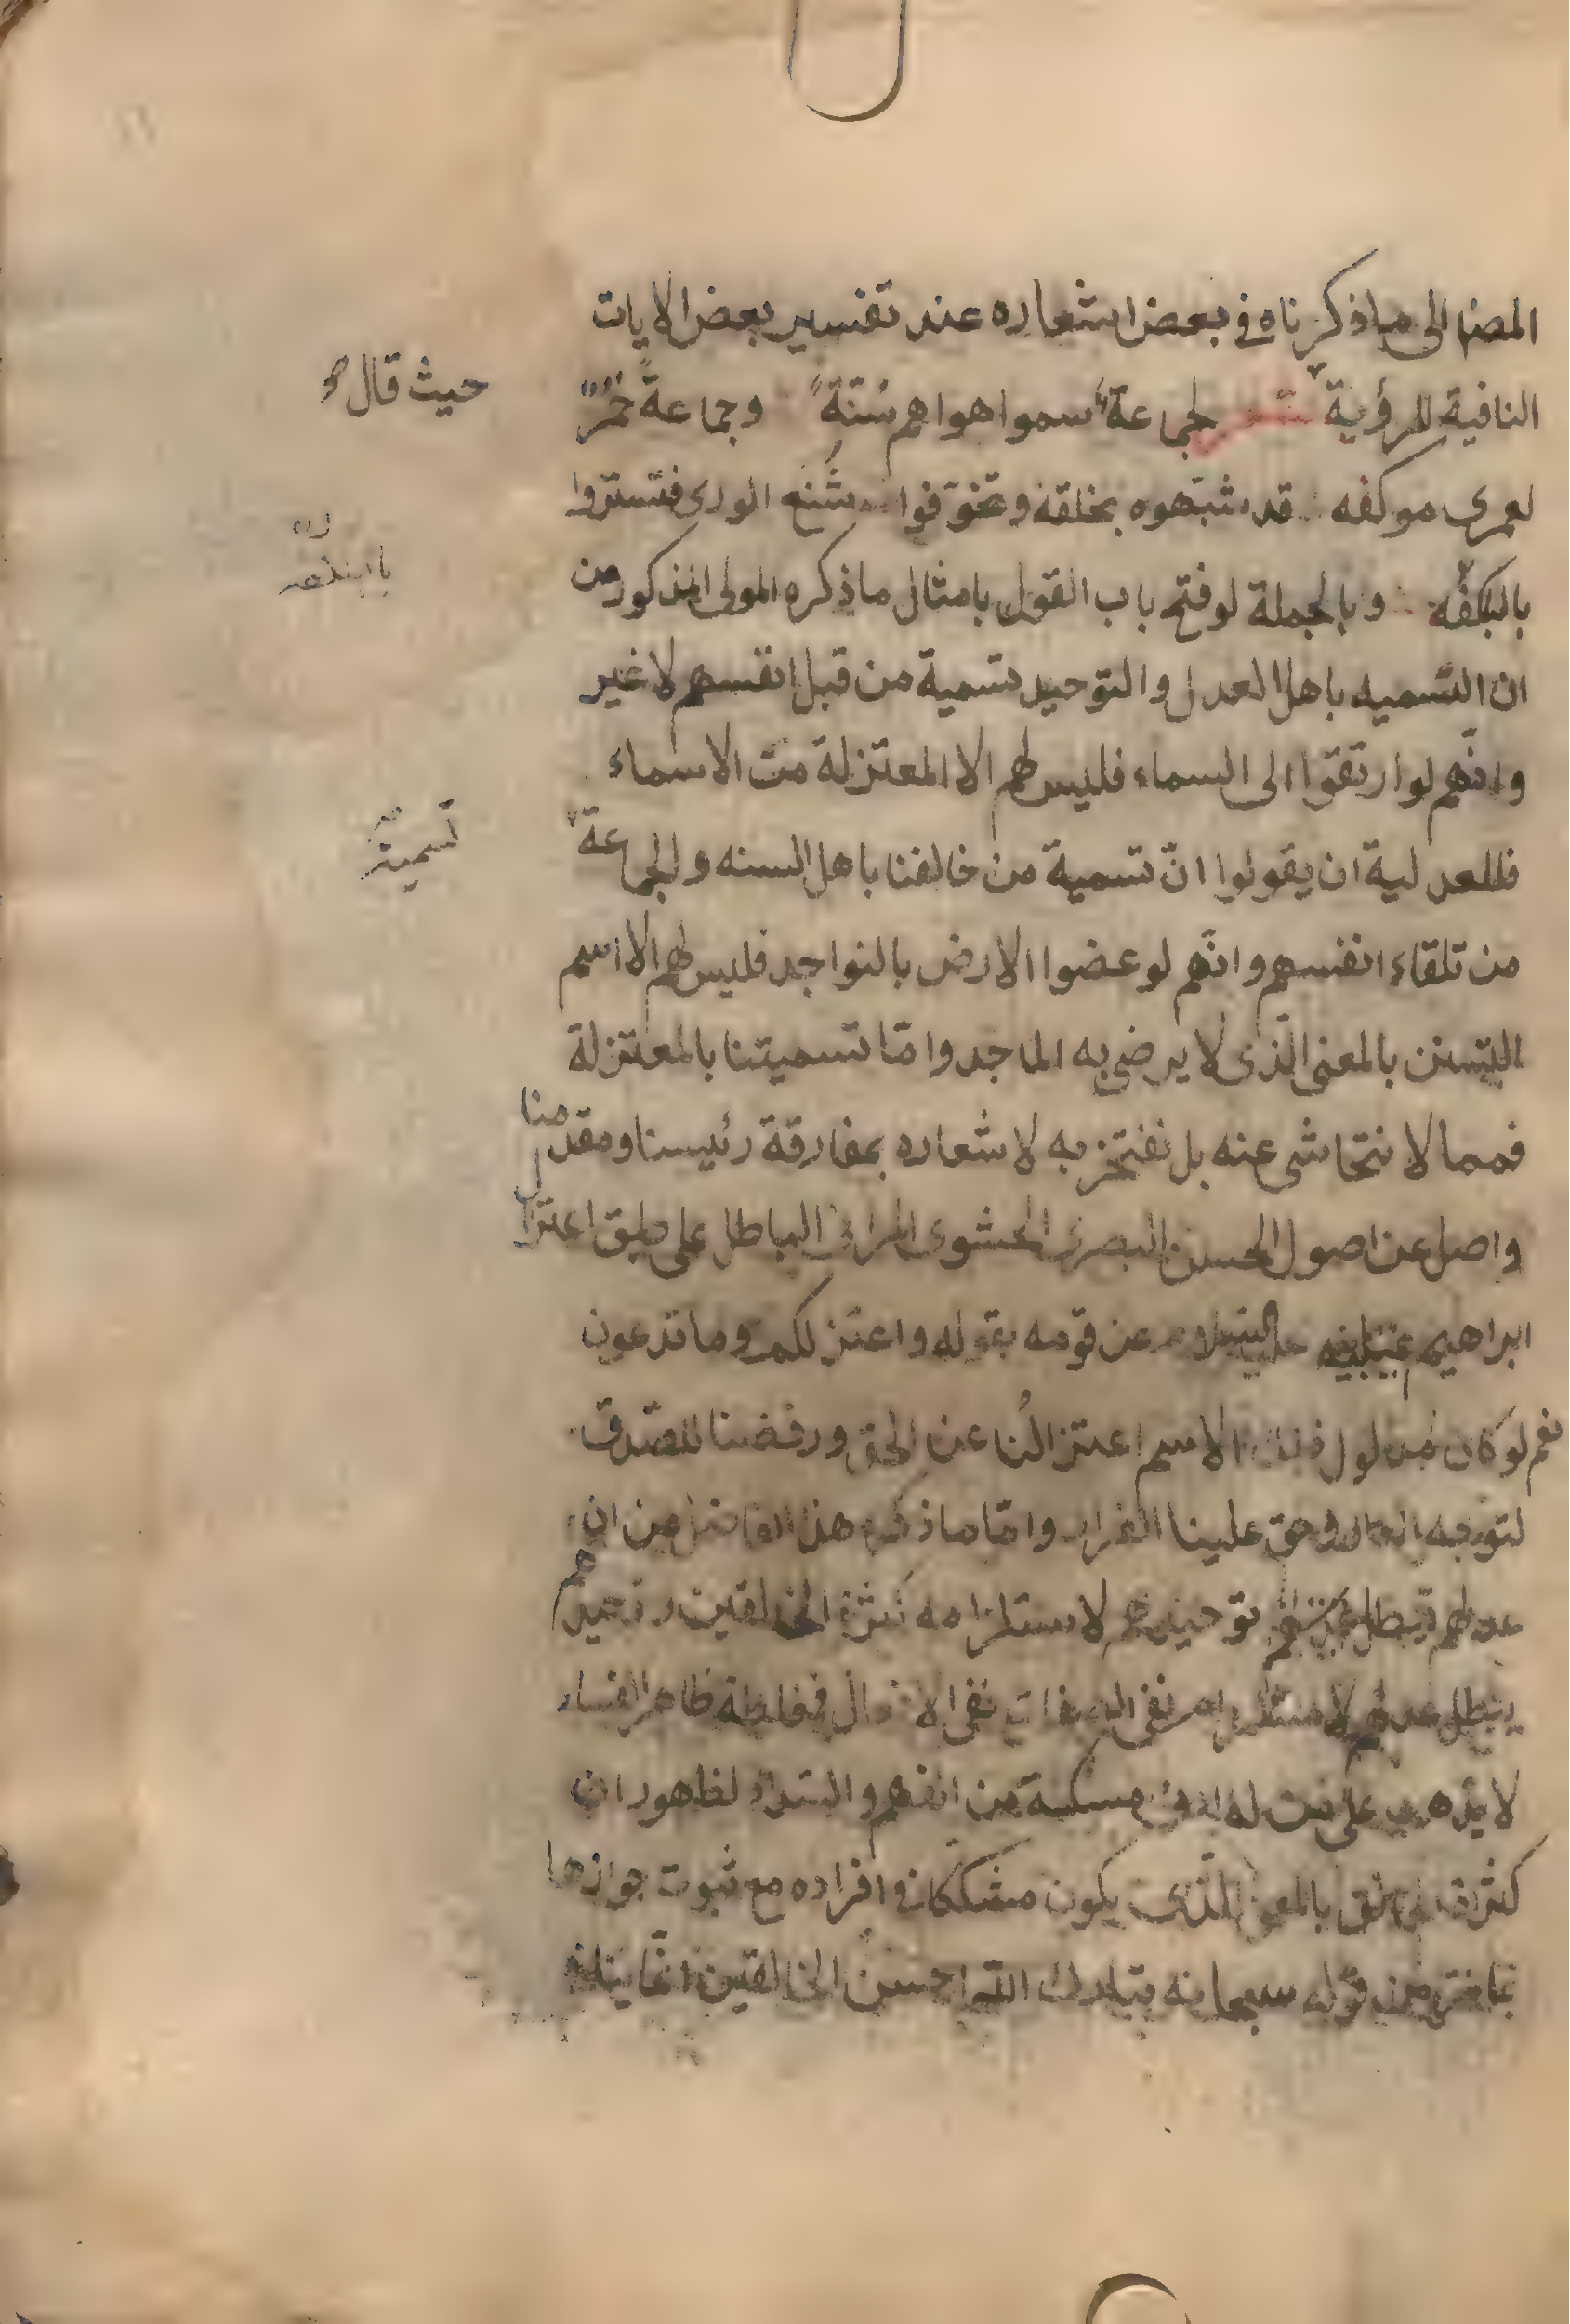 المضا الى ما ذكرناه في بعض اشعاره عند تفسير بعض الايات
النافية للرؤية شعر لجماعة سموا هواهم سنّة وجماعة حمر
حيث قال
لعمرى موكفه قد شبّهوه بخلقه وتخوّفوا شُنَع الورى فتستروا
بالبلكفه وبالجملة لو فتح باب القول بامثال ما ذكره المولى المذكور من
ان التسميه باهل العدل والتوحيد تسمية من قبل انفسهم لا غير
وانّهم لو ارتقوا الى السماء فليس لهم الا المعتزلة من الاسماء
فللعدلية ان يقولوا انّ تسمية من خالفنا باهل السنه والجماعة
تسمية
من تلقاء انفسهم وانّهم لو عضوا الارض بالنواجد فليس لهم الا اسم
التسنن بالمعنى الّذى لا يرضى به الماجد وامّا تسميتنا بالمعتزلة
فمما لا نتحاشى عنه بل نفتخر به لاشعاره بمفارقة رئيسنا ومقدمنا
واصل عن اصول الحسن البصرى الحشوى المرائى الباطل على طبق اعتزال
ابراهيم عليه السلام عن قومه بقوله واعتزلكم وما تدعون
نعم لو كان مدلول ذلك الاسم اعتزالنا عن الحق ورفضنا للصّدق
لتوجه وحق علينا الفرار وامّا ما ذكره هذا الفاضل من ان
عدلهم يبطل توحيدهم لاستلزامه كثرة الخالقين وتوحيدهم
يبطل عدلهم نفى الصفات نفى الافعال فمغلطة ظاهر الفساد
لا يذهب على من له ادنى مسكة من الفهم والسّداد لظهور ان
كثرة الخالق بالمعنى الّذى يكون مشككا فى افراده مع ثبوت جوازها
من قوله سبحانه تبارك اللّه احسن الخالقين انّما